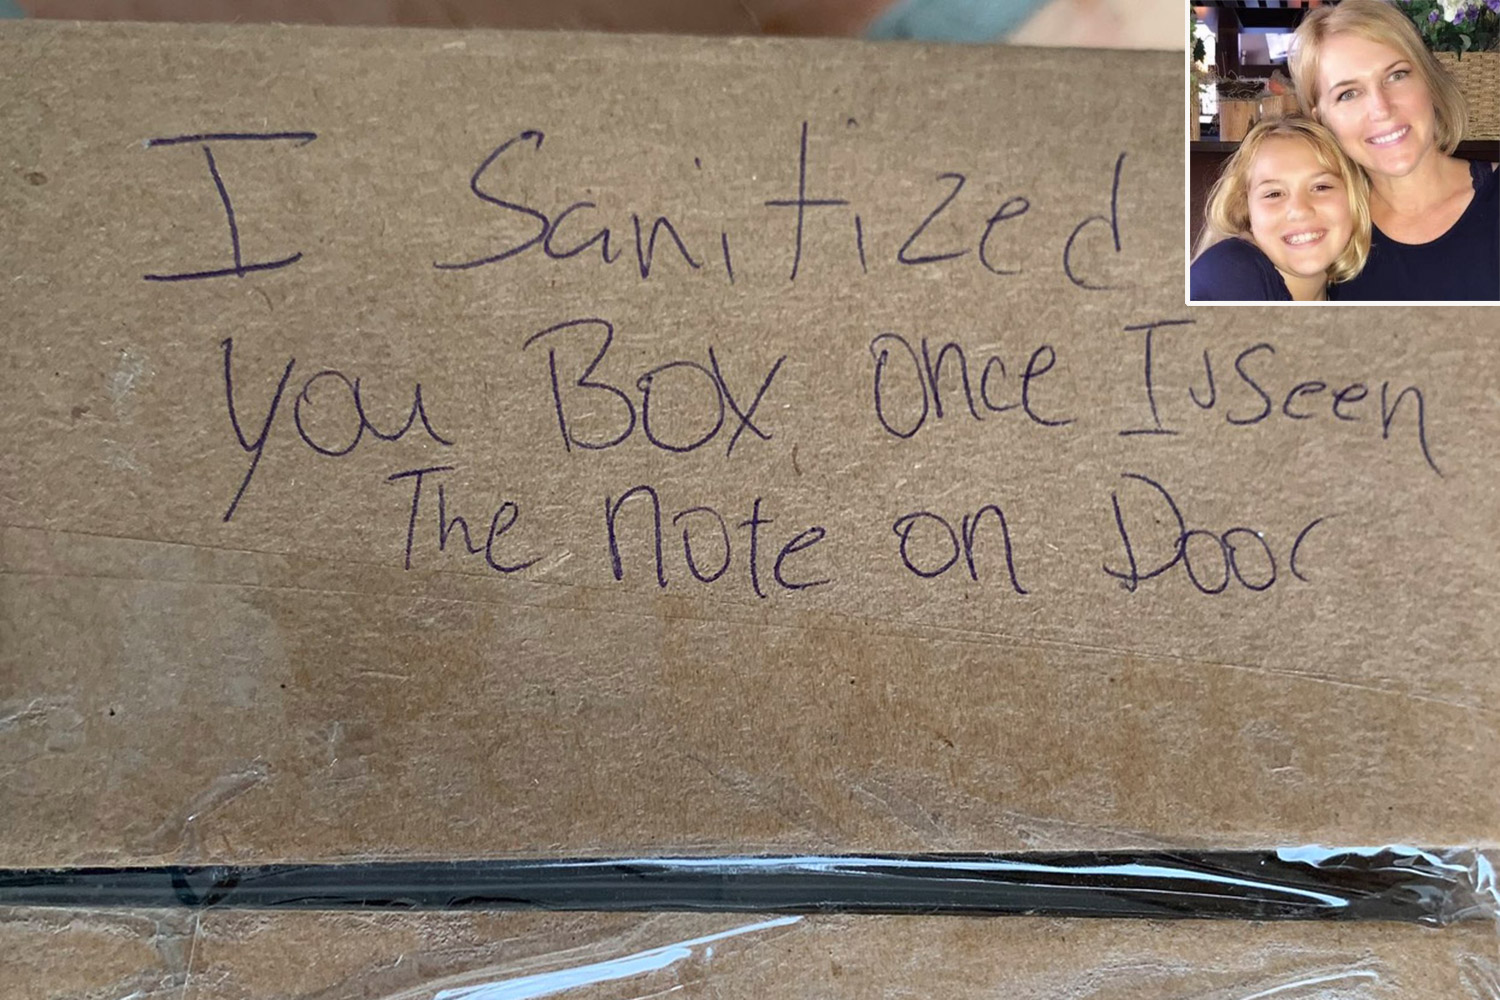 I Sanitized
you Box once I seen
The note on Door